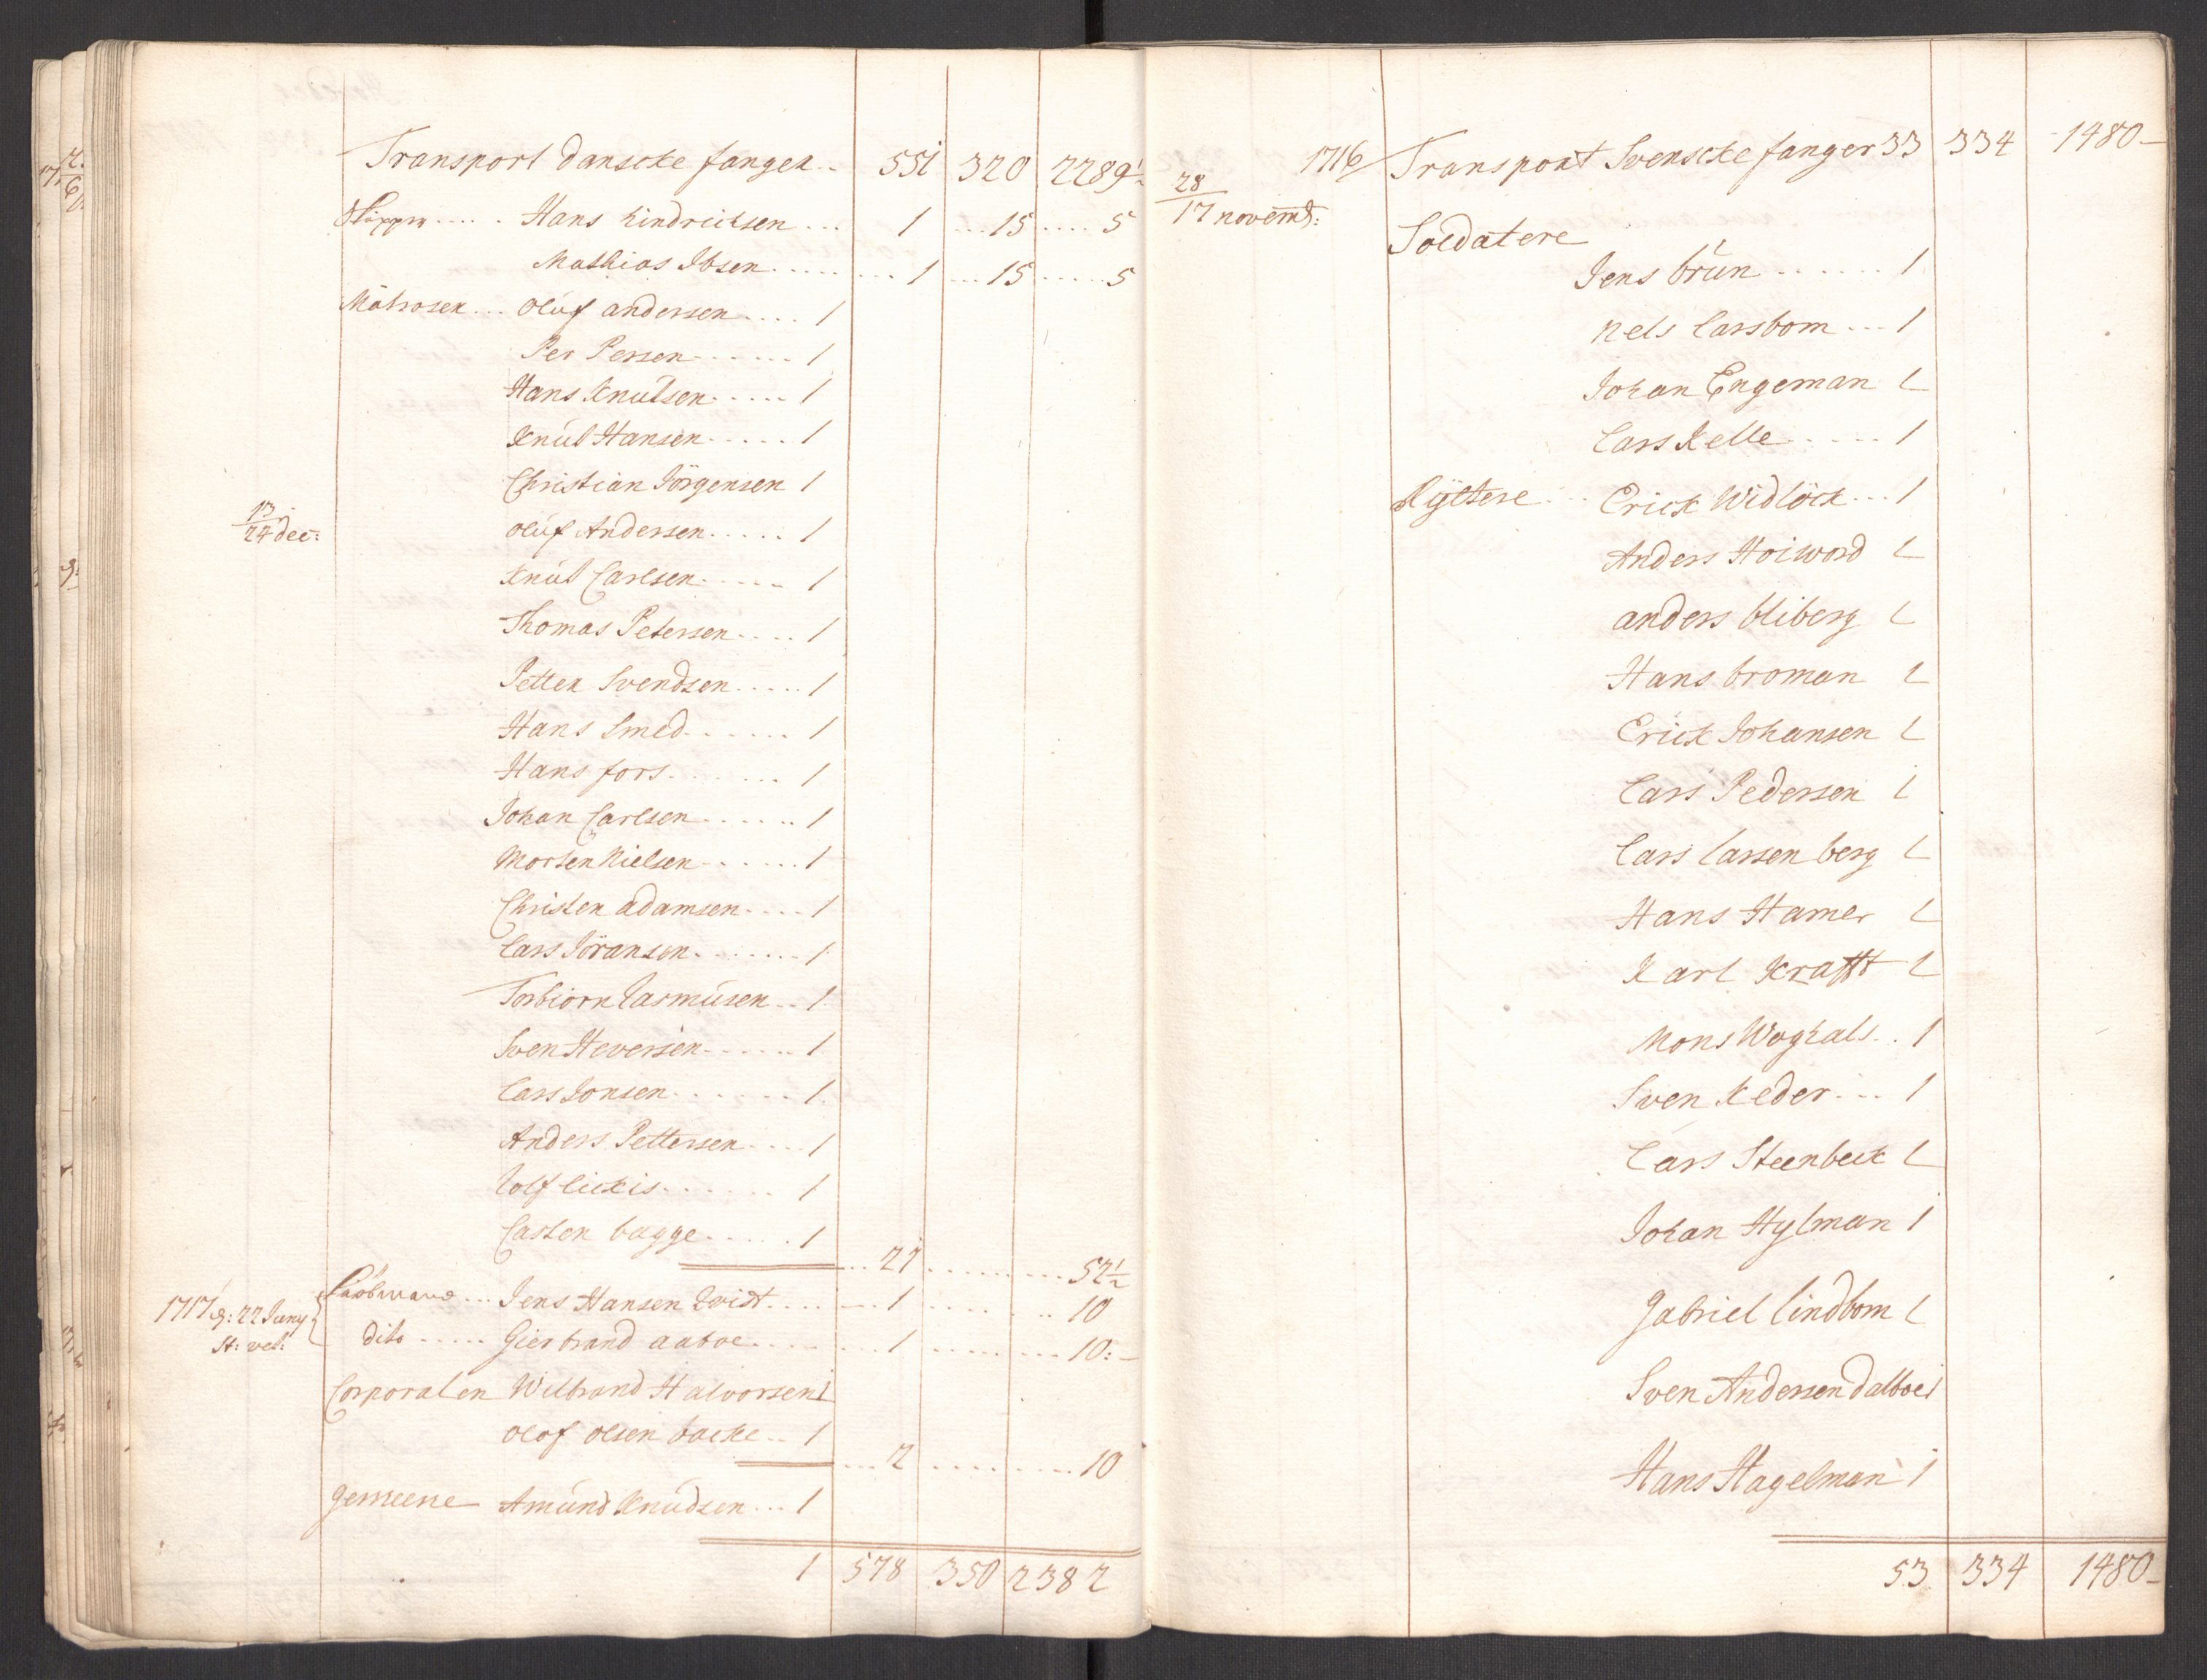 Transport danscke fangen.. 551 320 2289½
Skipper..... Hans hindrichsen ... 1 ...15 .....5
Mathias Ibsen....... 1 ...15 .....5
Matrosen... Oluf andersen.... 1
Per Persen...... 1
Hans Knutsen..... 1
Knut Hansen..... 1
Christian Jörgensen 1
13/24 dec: Oluf Andersen..... 1
Knut Carlsen..... 1
Thomas Petersen.... 1
Petter Svendsen..... 1
Hans Smed...... 1
Hans fors....... 1
Johan Carlsen...... 1
Morten Nielsen...... 1
Christen adamsen.... 1
Lars Jöransen....... 1
Torbiorn Rasmusen.. 1
Sven Heversen...... 1
Lars Jonsen....... 1
Anders Pettersen.... 1
Rolf lickis...... 1
Casten bagge..... 1
..21 ........ ...52½
1717 d: 22 Juny Jens Hansen Qvist.... 1 ..... .. 10
St: vet: dito ..... Gierbrand aaboe.... 1 ........ 10:-
Corporalen Wilbrand Halvorsen 1
Olof olsen backe.. 1
....2 .........10
gemeene Amund Knudsen... 1
1 578 350 2382
1716 Transport Svenscke fanger 33 334 -1480-
28/17 novemb:
Soldatere
Jens brun ...... 1
Nels Larsbom ... 1
Johan Engeman 1
Lars Kelle ..... 1
Ryttere ... Erick Widlöck... 1
Anders Hoiword 1
anders bliberg 1
Hans broman 1
Erick Johansen 1
Lars Pedersen 1
Lars larsen berg 1
Hans Hamer 1
Karl Krafft 1
Mons Woghals.. 1
Sven Keder... 1
Lars Steenbeck 1
Johan Hylman 1
Gabriel lindbom 1
Sven Andersen dalboe 1
Hans Hagelman 1
53 334 1480-